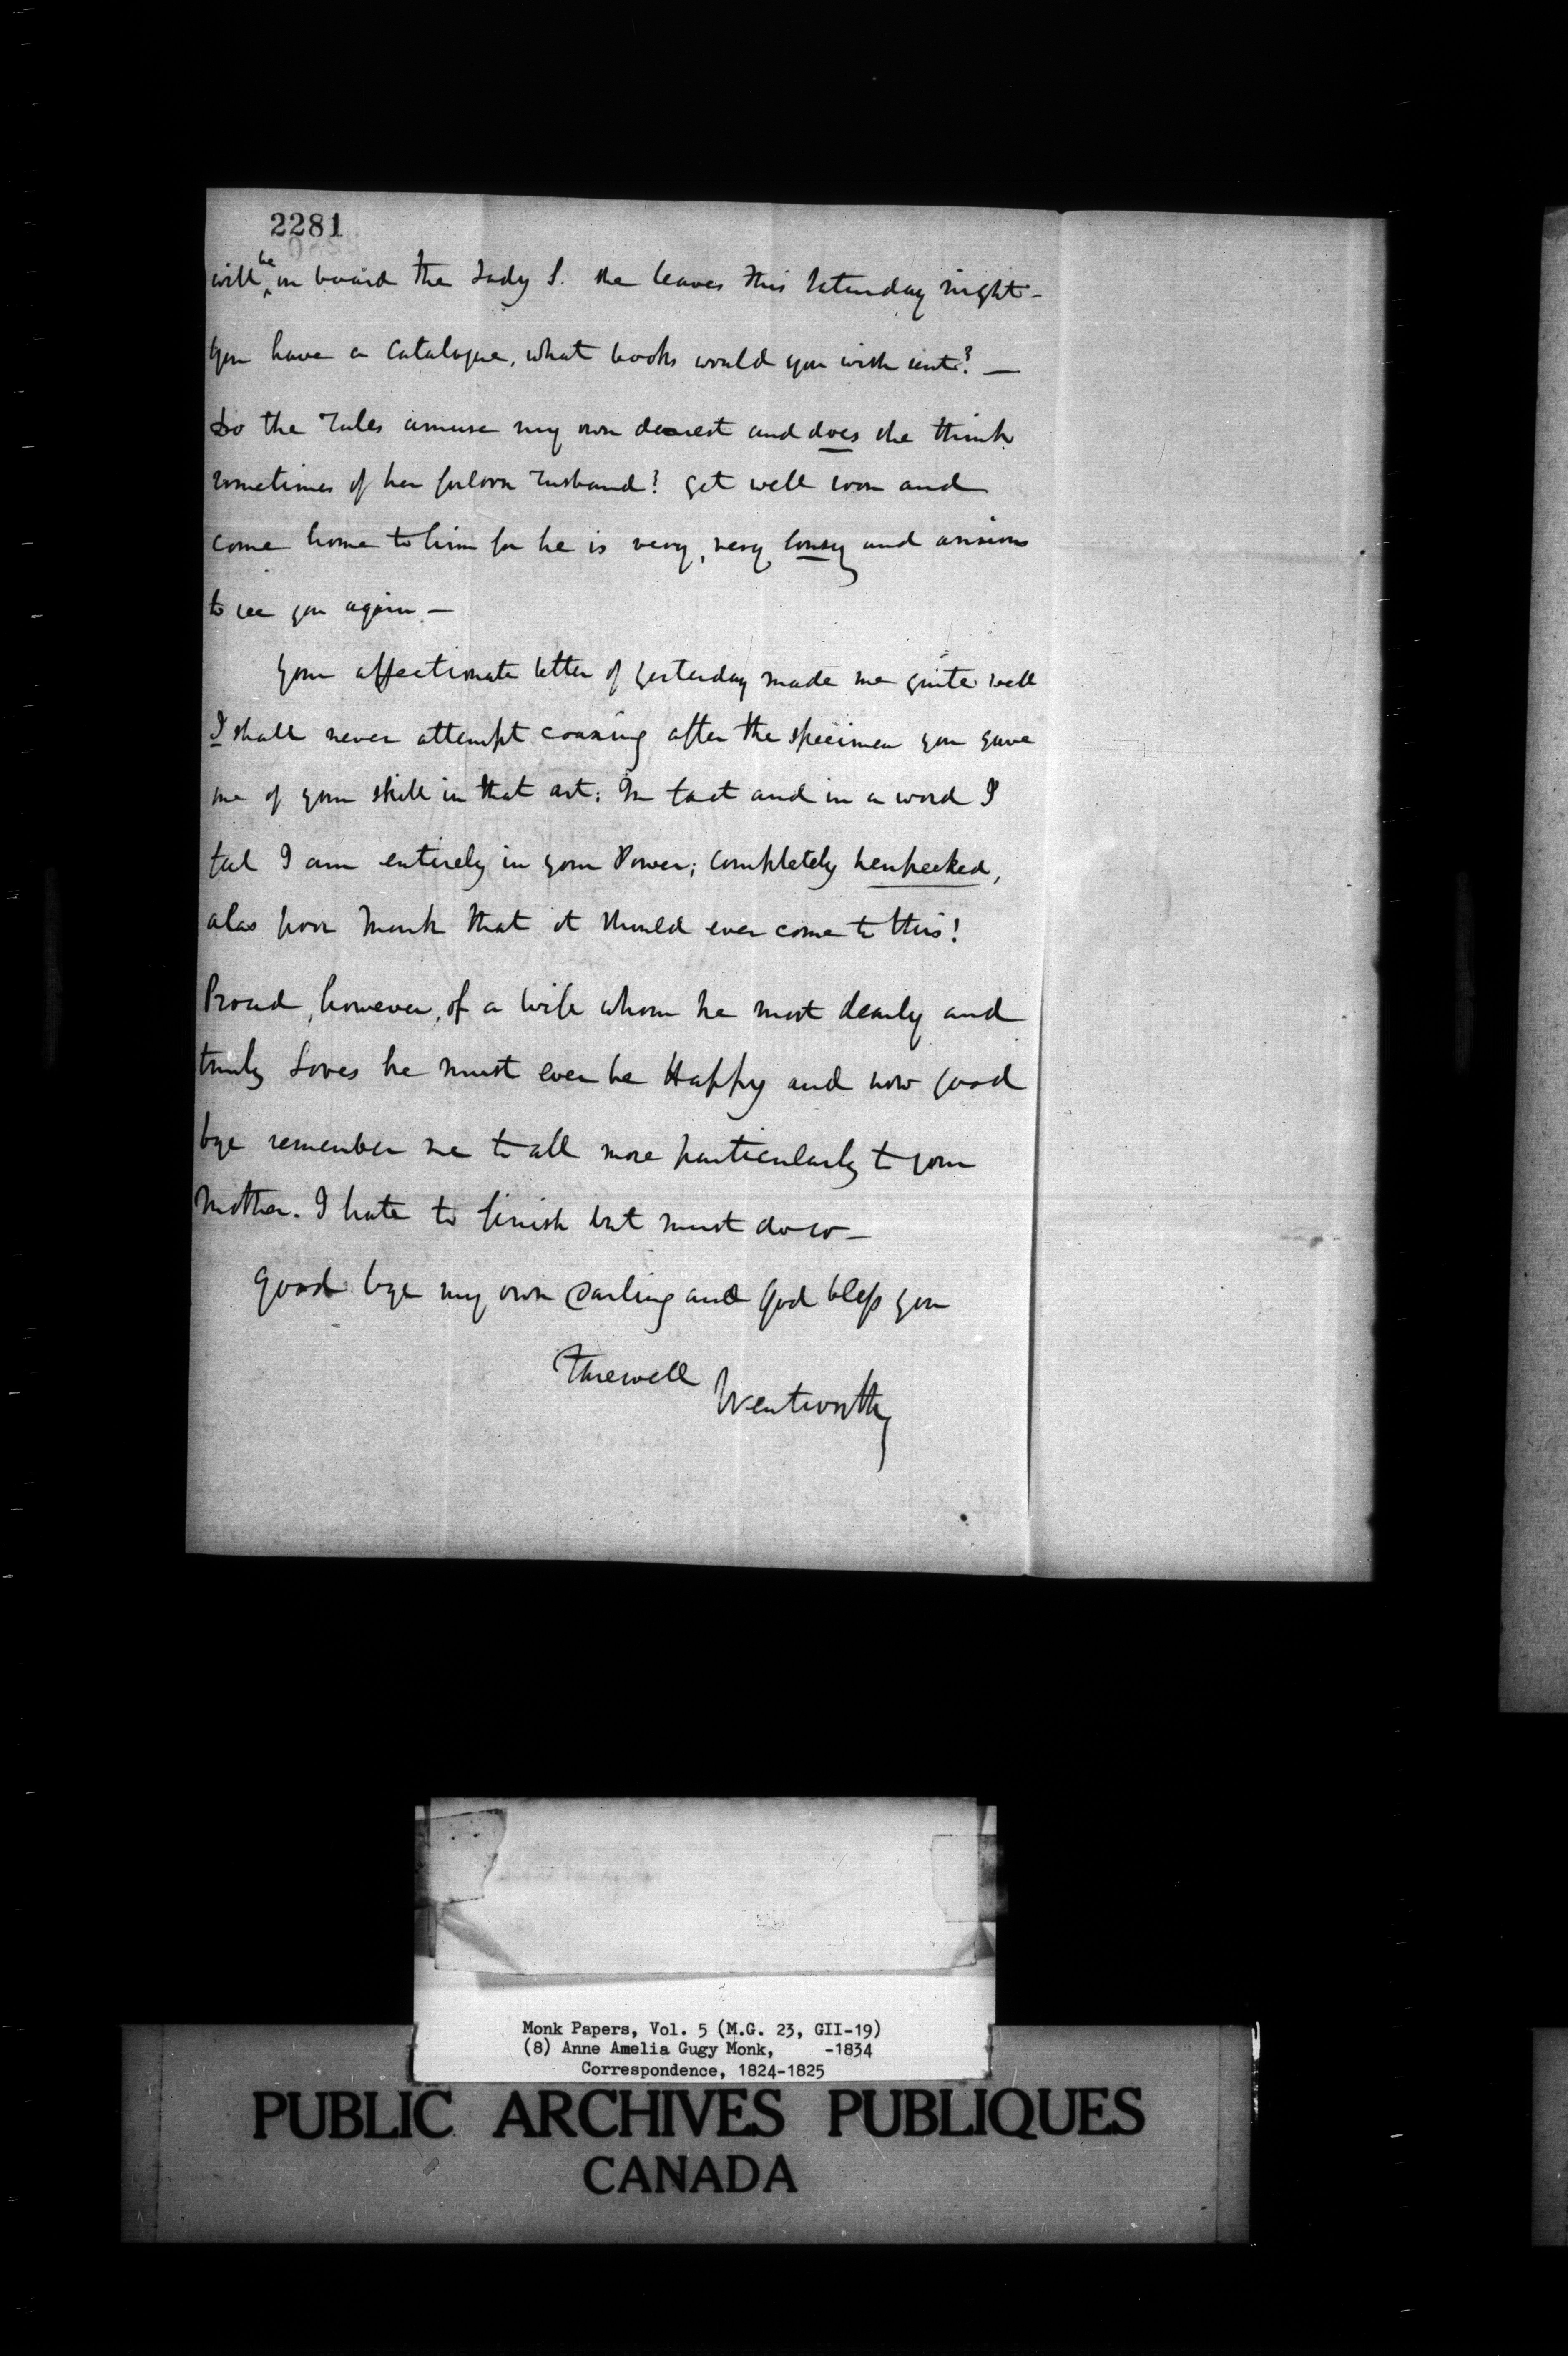 2281
will be on board the Lady S. she leaves this Saturday night –
You have a Catalogue, what books would you wish sent? —
Do the Tales amuse my own dearest and does she think
sometimes of her forlorn Husband? get well soon and
come home to him for he is very, very lonely and anxious
to see you again. —
Your affectionate letter of yesterday made me quite well
I shall never attempt coaxing after the specimen you gave
me of your skill in that art: In fact and in a word I
feel I am entirely in your Power; completely henpecked,
alas poor Monk that it should ever come to this!
Proud, however, of a Wife whom he most dearly and
truly Loves he must ever be Happy and now good
bye remember me to all more particularly to your
Mother. I hate to finish but must do so —
Good bye my own Darling and God bless you
Farewell
Wentworth
Monk Papers, Vol. 5 (M.G. 23, GII-19)
(8) Anne Amelia Gugy Monk, -1834
Correspondence, 1824-1825
PUBLIC ARCHIVES PUBLIQUES
CANADA